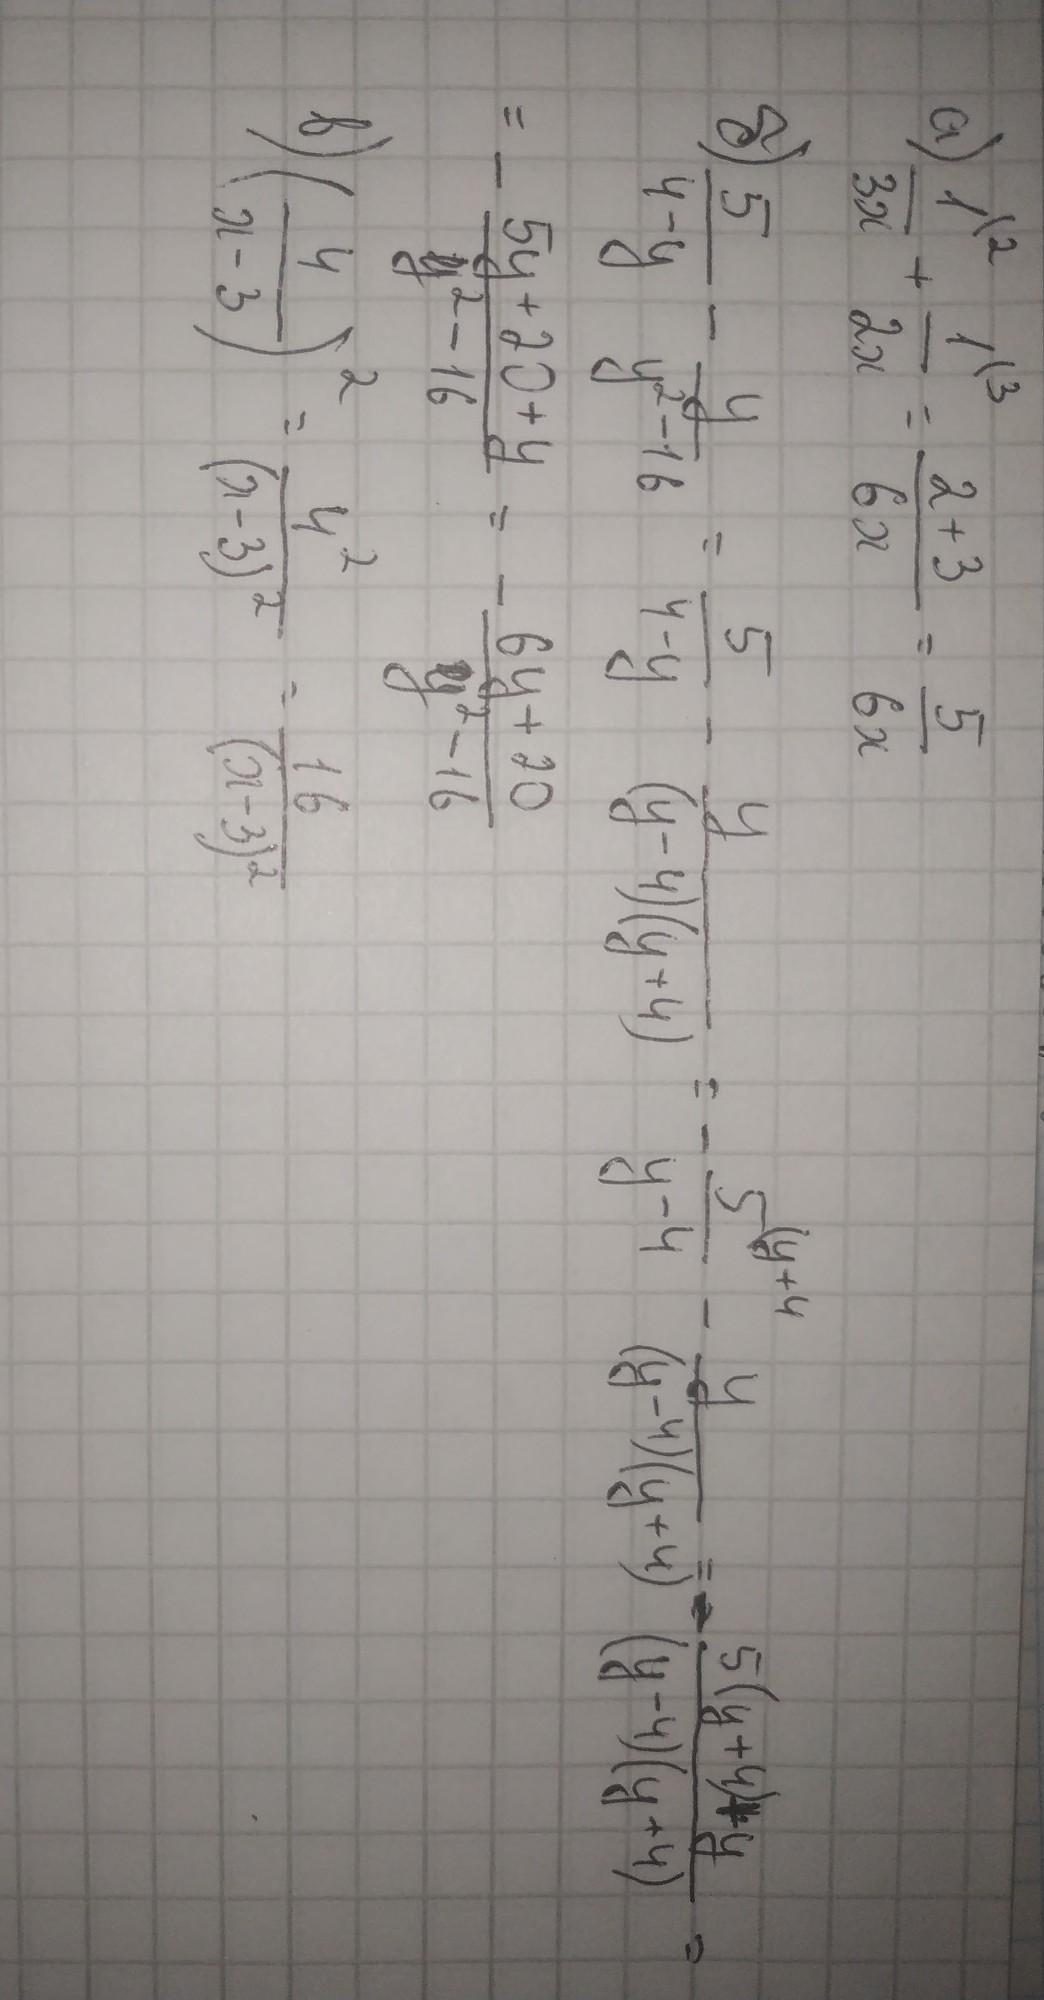 а) 1(2/3x + 1(3/2x = 2+3/6x = 5/6x
б) 5/4-y - y/y²-16 = 5/4-y - y/(y-4)(y+4) = - 5(y+4/y-4 - y/(y-4)(y+4) = - 5(y+4)+y/(y-4)(y+4) =
= - 5y+20+y/y²-16 = - 6y+20/y²-16
в) (4/x-3)² = 4²/(x-3)² = 16/(x-3)²